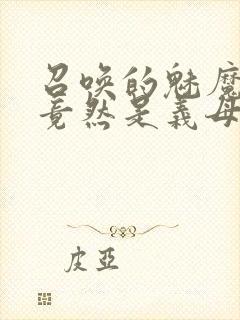 召喚的魅魔
竟然是義母
皮亞